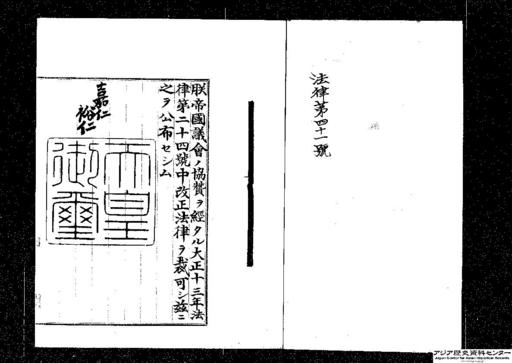 法律第四十一號
朕帝國議會ノ協贊ヲ經タル大正十三年法
律第二十四號中改正法律ヲ裁可シ茲ニ
之ヲ公布セシム
嘉仁
裕仁
天皇
御璽
アジア歴史資料センター
Japan Center for Asian Historical Records